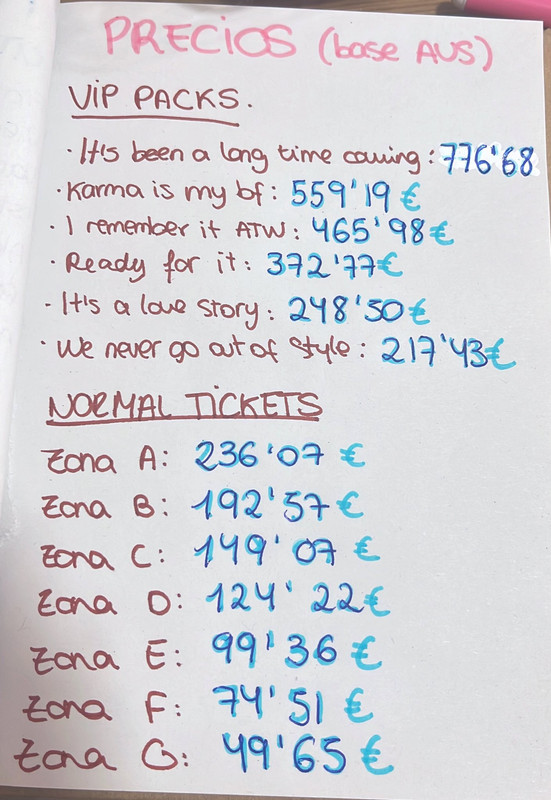 PRECIOS (base AUS)
VIP PACKS.
· It's been a long time coming: 776'68
· Karma is my bf: 559'19 €
· I remember it ATW: 465'98€
· Ready for it: 372'77€
- It's a love story: 248'50 €
· We never go out of style: 217'43€
NORMAL TICKETS
Zona A: 236'07 €
Zona B: 192'57€
Zona C: 149'07 €
Zona D: 124'22€
Zona E: 99'36 €
Zona F: 74'51 €
Zona G: 49'65 €